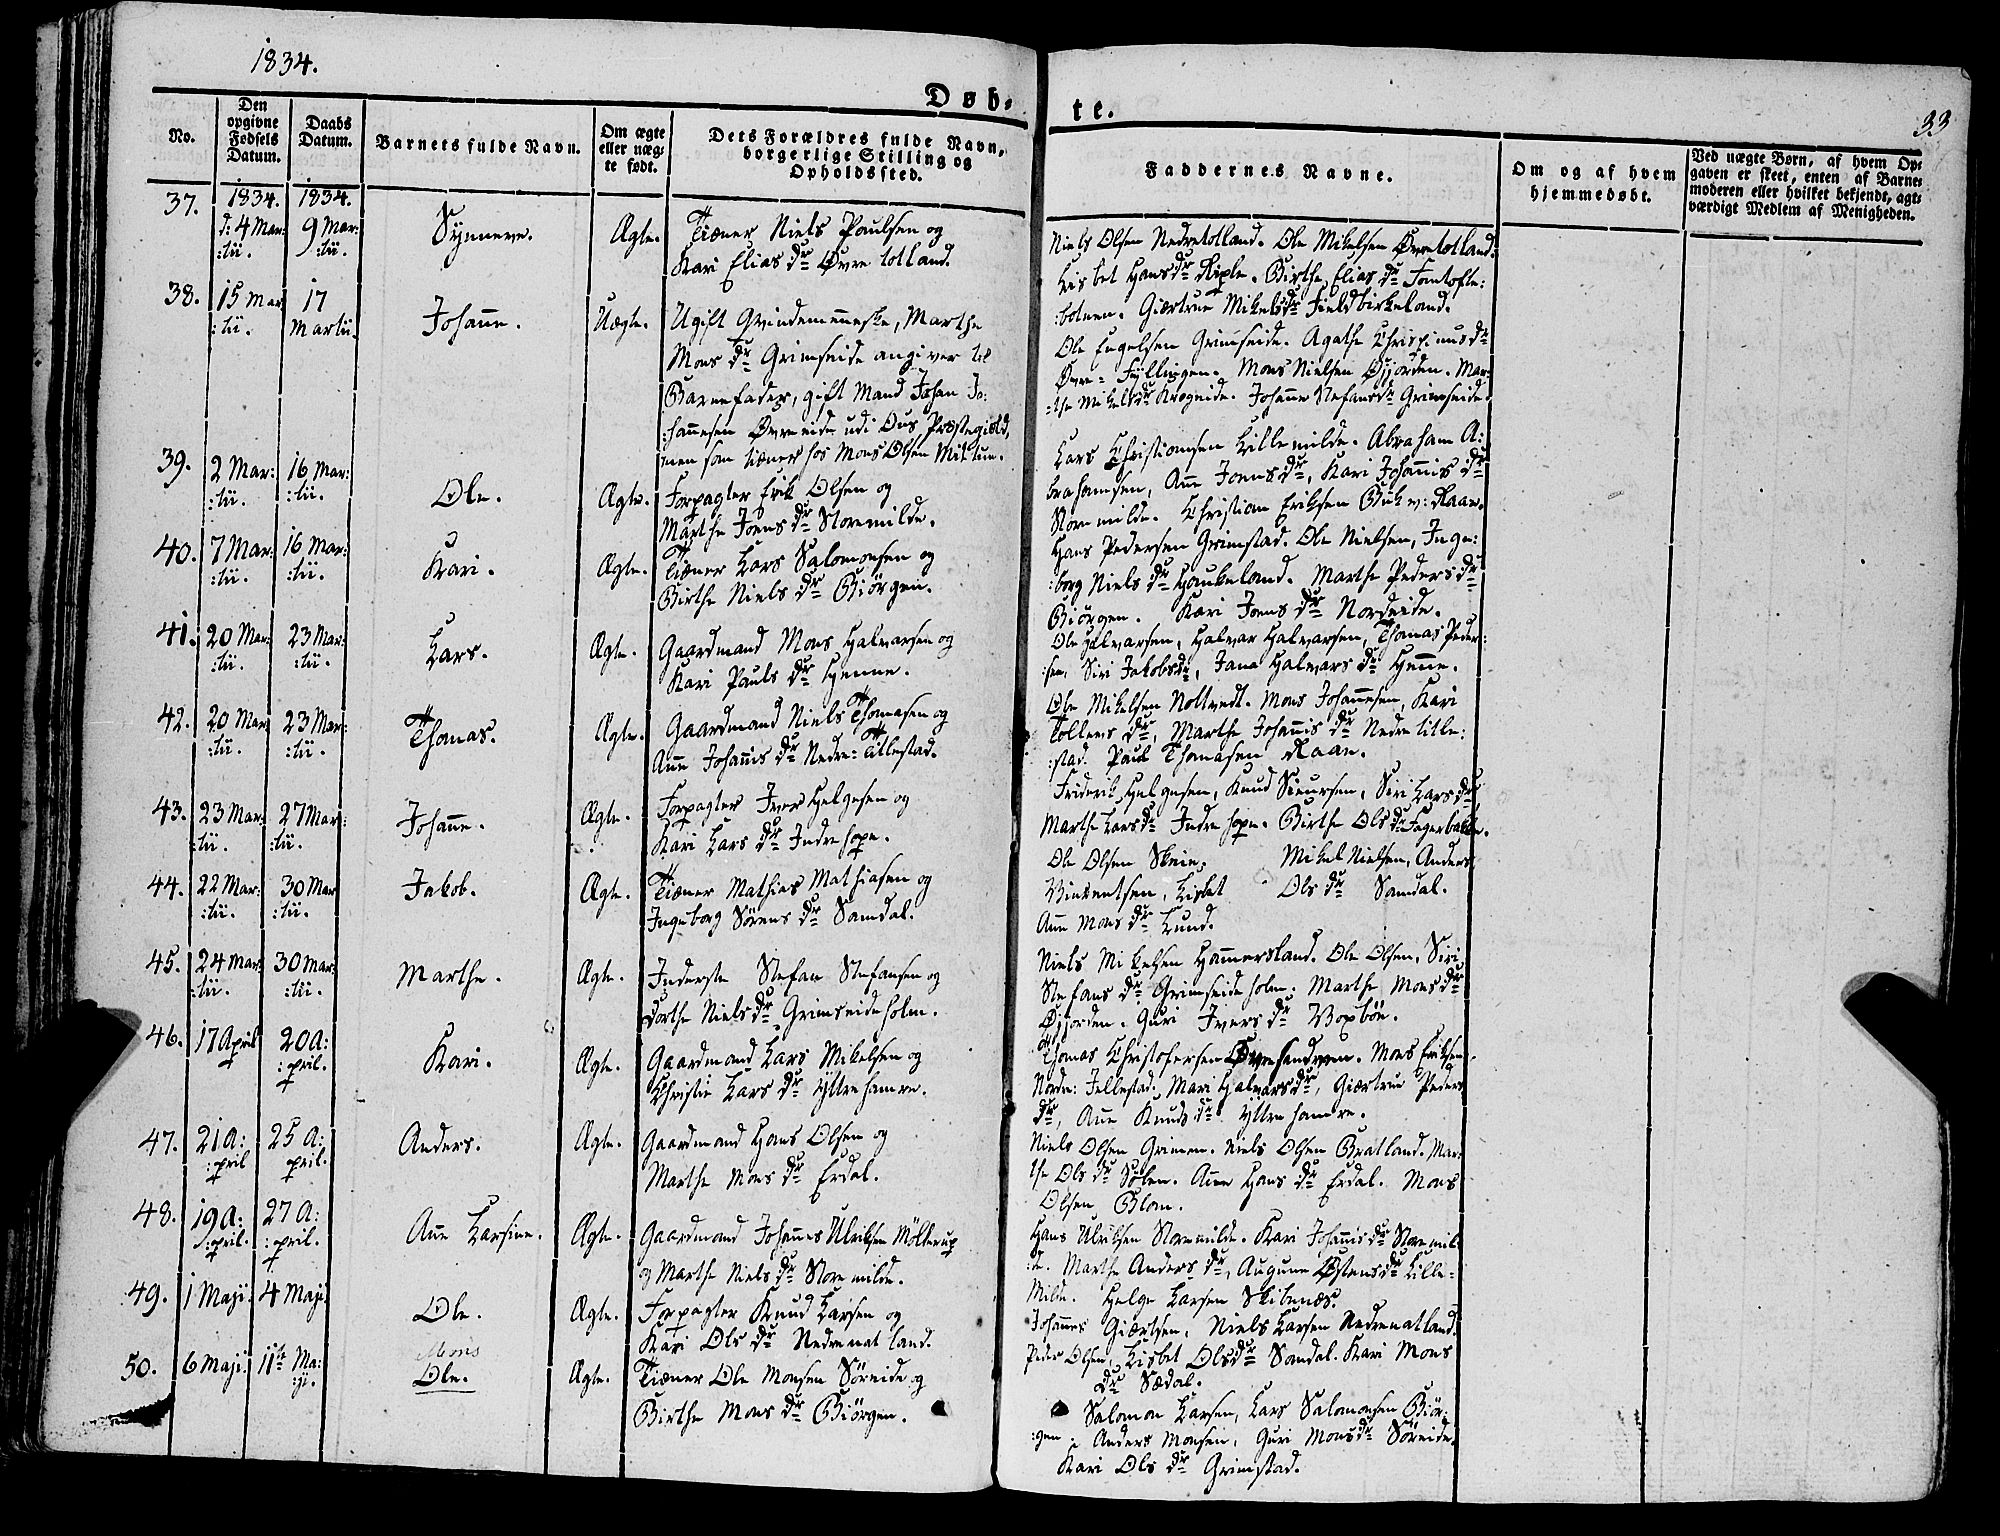 1834.
Døb-
te.
33
No.
Den
opgivne
Fødsels
Datum.
Daabs
Datum.
Barnets fulde Navn.
Om ægte
eller uæg-
te født.
Dets Forældres fulde Navn,
borgerlige Stilling og
Opholdssted.
Faddernes Navne.
Om og af hvem
hjemmedøbt.
Ved uægte Børn, af hvem Op-
gaven er skeet, enten af Barne-
moderen eller hvilket bekjendt, agt-
værdigt Medlem af Menigheden.
37.
1834.
d: 4 Mar:
:tii.
1834.
9 Mar:
:tii.
Synneve.
Ægte.
Tiæner Niels Paulsen og
Kari Elias dr Øvre totland.
Niels Olsen Nedretotland. Ole Mikelsen Øvretotland.
Lisbet Hans dr Riple. Birthe Elias dr Tomtofte:
:botnen. Giertrue Mikels dr Fieldbirkeland.
38.
15 Mar
:tii.
17
Martii.
Johanne.
Uægte.
Ugift Qvindemenneske, Marthe
Mons dr Grimseide angiver til
Barnefader, gift Mand Johan Jo:
:hannesen Øvreeide udi Ous Præstegield,
men som tiæner hos Mons Olsen Mittun.
Ole Engelsen Grimseide. Agathe Chrispinus dr
Øvre= Fyllingen. Mons Nielsen Øjjorden. Mar:
:the Mikels dr Krogeide. Johanne Stefans dr Grimseide.
39.
2 Mar:
:tii.
16 Mar:
:tii.
Ole.
Ægte.
Forpagter Erik Olsen og
Marthe Joens dr Storemilde.
Lars Christiansen Lillemilde. Abraham A:
brahamsen, Ane Joens dr, Kari Johannis dr
Storemilde. Christian Eriksen Birk v: Raae.
40.
7 Mar:
:tii.
16 Mar:
:tii.
Kari.
Ægte.
Tiæner Lars Salomonsen og
Birthe Niels dr Biørgen.
Hans Pedersen Grimstad. Ole Nielsen, Inge:
:borg Niels dr Haukeland. Marthe Peders dr
Biørgen. Kari Joens dr Nordeide.
41.
20 Mar:
:tii.
23 Mar:
:tii.
Lars.
Ægte.
Gaardmand Mons Halvarsen og
Kari Pauls dr Henne.
Ole Halvarsen, Halvar Halvarsen, Thomas Peder:
:sen, Siri Jakobs dr, Jana Halvars dr Henne.
42.
20 Mar
:tii.
23 Mar:
:tii.
Thomas.
Ægte.
Gaardmand Niels Thomasen og
Ane Johannis dr Nedre: Titlestad.
Ole Mikelsen Nottvedt. Mons Johannesen, Kari
Tollevs dr, Marthe Johannis dr Nedre title:
:stad. Paul Thomasen Raae.
43.
23 Mar:
:tii.
27 Mar:
:tii.
Johanne.
Ægte.
Forpagter Iver Helgesen og
Kari Lars dr Indre hope.
Friderik Helgesen, Knud Siursen, Siri Lars dr
Marthe Lars dr Indre hope. Birthe Ols dr Fagerbakke.
44.
22 Mar:
:tii.
30 Mar
:tii.
Jakob.
Ægte.
Tiæner Mathias Mathiasen og
Ingeborg Sørens dr Samdal.
Ole Olsen Skeie, Mikel Nielsen, Anders
Vinkentsen, Lisbet Ols dr Samdal.
Ane Mons dr Lund.
45.
24 Mar:
:tii.
30 Mar:
:tii.
Marthe.
Ægte.
Inderste Stefan Stefansen og
Dorthe Niels dr Grimseideholm.
Niels Mikelsen Hamersland. Ole Olsen, Siri
Stefans dr Grimseideholm. Marthe Mons dr
Øjjorden. Guri Ivers dr Voxbøe.
46.
17 April
20 A:
:pril.
Kari.
Ægte.
Gaardmand Lars Mikelsen og
Christie Lars dr Yttre hamre.
Thomas Christofersen Øvresandven. Mons Eriksen
Nordre: Fellestad. Mari Halvars dr, Giertrue Peders
dr, Ane Knuds dr Yttre hamre.
47.
21 A:
:pril
25 A:
pril.
Anders.
Ægte.
Gaardmand Hans Olsen og
Marthe Mons dr Erdal.
Niels Olsen Grimen. Niels Olsen Bratland. Mar:
the Ols dr Sølen. Ane Hans dr Erdal. Mons
Olsen Blom.
48.
19 A:
:pril.
27 A:
:pril.
Ane Larsine.
Ægte.
Gaardmand Johannes Ulriksen Mølterup
og Marthe Niels dr Storemilde.
Hans Ulriksen Storemilde. Kari Johannis dr Store mil:
:de. Marthe Anders dr, Augune Østens dr Lille=
Milde. Helge Larsen Skibenæs.
49.
1 Maji.
4 Maji.
Ole.
Ægte.
Forpagter Knud Larsen og
Kari Ols dr Nedrenatland.
Johannes Giertsen, Niels Larsen Nedrenatland.
Peder Olsen, Lisbet Ols dr Sandal. Kari Mons
dr Sædal.
50.
6 Maji.
11te Ma:
:ji.
Mons
Ole.
Ægte.
Tiæner Ole Monsen Søreide og
Birthe Mons dr Biørgen.
Salomon Larsen, Lars Salomonsen Biør:
:gen. Anders Monsen, Guri Mons dr Søreide.
Kari Ols dr Grimstad.